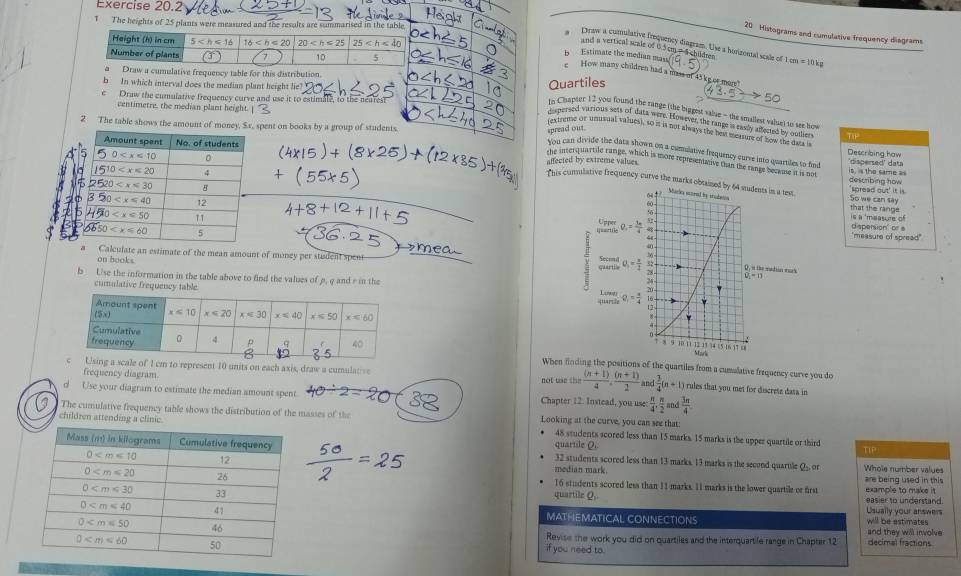 Exercise 20.2
1 The heights of 25 plants were measured and the results are summarised in the table.
Height (h) in cm 5 < h ≤ 16 16 < h ≤ 20 20 < h ≤ 25 25 < h ≤ 40
Number of plants 3 7 10 5
0<h≤5 0
0≤h≤16 3
0<h≤20 10
0<h≤25 20
0<h≤40 25
a Draw a cumulative frequency table for this distribution.
b In which interval does the median plant height lie? 20≤h≤25
c Draw the cumulative frequency curve and use it to estimate, to the nearest
centimetre, the median plant height.
2 The table shows the amount of money, $x, spent on books by a group of students.
Amount spent No. of students
5 0 < x ≤ 10 0
15 10 < x ≤ 20 4
25 20 < x ≤ 30 8
35 30 < x ≤ 40 12
45 40 < x ≤ 50 11
50 < x ≤ 60 5
(4x15) + (8x25) + (12x35) +
+ (55x5)
4+8+12+11+5
36.25 → mean
a Calculate an estimate of the mean amount of money per student spent
on books.
b Use the information in the table above to find the values of p, q and r in the
cumulative frequency table.
Amount spent ($x) x ≤ 10 x ≤ 20 x ≤ 30 x ≤ 40 x ≤ 50 x ≤ 60
Cumulative frequency 0 4 p q r 40
8 12 35
c Using a scale of 1 cm to represent 10 units on each axis, draw a cumulative
frequency diagram.
d Use your diagram to estimate the median amount spent. 40÷2=20 38
The cumulative frequency table shows the distribution of the masses of the
children attending a clinic.
Mass (m) in kilograms Cumulative frequency
0 < m ≤ 10 12
0 < m ≤ 20 26
0 < m ≤ 30 33
0 < m ≤ 40 41
0 < m ≤ 50 46
0 < m ≤ 60 50
50/2 = 25
20 Histograms and cumulative frequency diagrams
a Draw a cumulative frequency diagram. Use a horizontal scale of 1 cm = 10 kg
and a vertical scale of 0.5 cm = 4 children.
b Estimate the median mass. (19.5)
c How many children had a mass of 45 kg or more?
43.5 → 50
Quartiles
In Chapter 12 you found the range (the biggest value − the smallest value) to see how
dispersed various sets of data were. However, the range is easily affected by outliers
(extreme or unusual values), so it is not always the best measure of how the data is
spread out.
You can divide the data shown on a cumulative frequency curve into quartiles to find
the interquartile range, which is more representative than the range because it is not
affected by extreme values.
This cumulative frequency curve shows the marks obtained by 64 students in a test.
TIP
Describing how
'dispersed' data
is, is the same as
describing how
'spread out' it is.
So we can say
that the range
is a 'measure of
dispersion' or a
'measure of spread'.
Marks scored by students
Cumulative frequency
64
60
56
52
48
44
40
36
32
28
24
20
16
12
8
4
0
Upper quartile Q₃ = 3n/4
Second quartile Q₂ = n/2
Lower quartile Q₁ = n/4
Q₂ is the median mark
Q₂ = 13
7 8 9 10 11 12 13 14 15 16 17 18
Mark
When finding the positions of the quartiles from a cumulative frequency curve you do
not use the (n + 1)/4, (n + 1)/2 and 3/4(n + 1) rules that you met for discrete data in
Chapter 12. Instead, you use: n/4, n/2 and 3n/4.
Looking at the curve, you can see that:
• 48 students scored less than 15 marks. 15 marks is the upper quartile or third
quartile Q₃.
• 32 students scored less than 13 marks. 13 marks is the second quartile Q₂, or
median mark.
• 16 students scored less than 11 marks. 11 marks is the lower quartile or first
quartile Q₁.
TIP
Whole number values
are being used in this
example to make it
easier to understand.
Usually your answers
will be estimates
and they will involve
decimal fractions.
MATHEMATICAL CONNECTIONS
Revise the work you did on quartiles and the interquartile range in Chapter 12
if you need to.